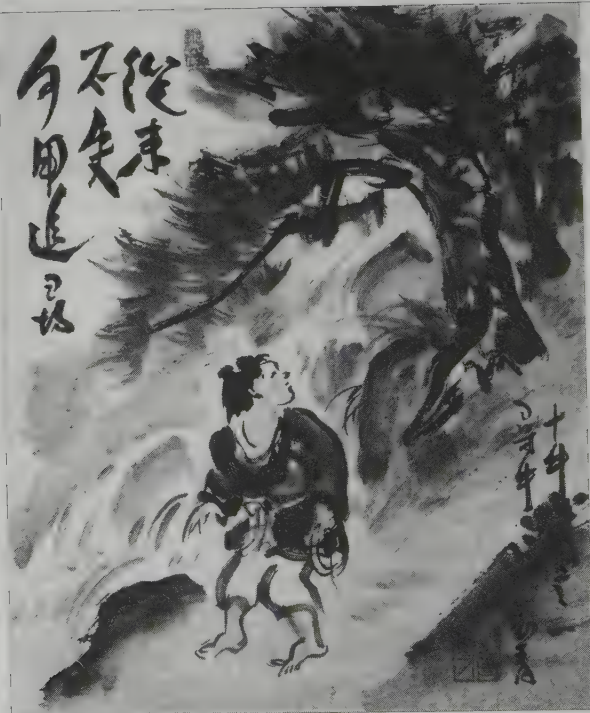 從来
不失
何用追尋
十牛
尋牛